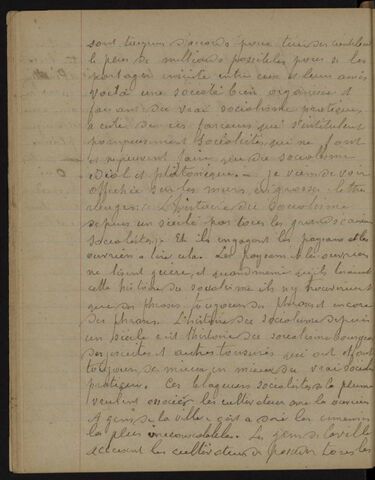 sont toujours d'accord pour tirer du contribuable
le plus de millions possibles pour se les
partager ensuite entre eux et leurs amis
voilà une société bien organisée et
faisant du vrai socialisme pratique
à côté de ces farceurs qui s'intitulent
pompeusement socialistes qui ne font
et ne peuvent faire que du socialisme
idiot et platonique. - je viens de voir
affiché sur les murs en grosses lettres
rouges: L'histoire du socialisme
depuis un siècle par tous les grands
socialistes. Et ils engagent les paysans et les
ouvriers à lire cela. Les paysans et les ouvriers
ne lisent guère, et quand même qu'ils liraient
cette histoire du socialisme ils n'y trouveraient
que des phrases, toujours des phrases et encore
des phrases. L'histoire du socialisme depuis
un siècle c'est l'histoire du socialisme bourgeois
des jésuites et autres tonsurés qui ont fait
toujours de mieux en mieux du vrai socialisme
pratique. Ces blagueurs socialistes à la plume
veulent associer les cultivateurs avec les ouvriers
et gens de la ville, c'est à dire les ennemis
les plus irréconciliables. Les gens de la ville
accusent les cultivateurs de tous les